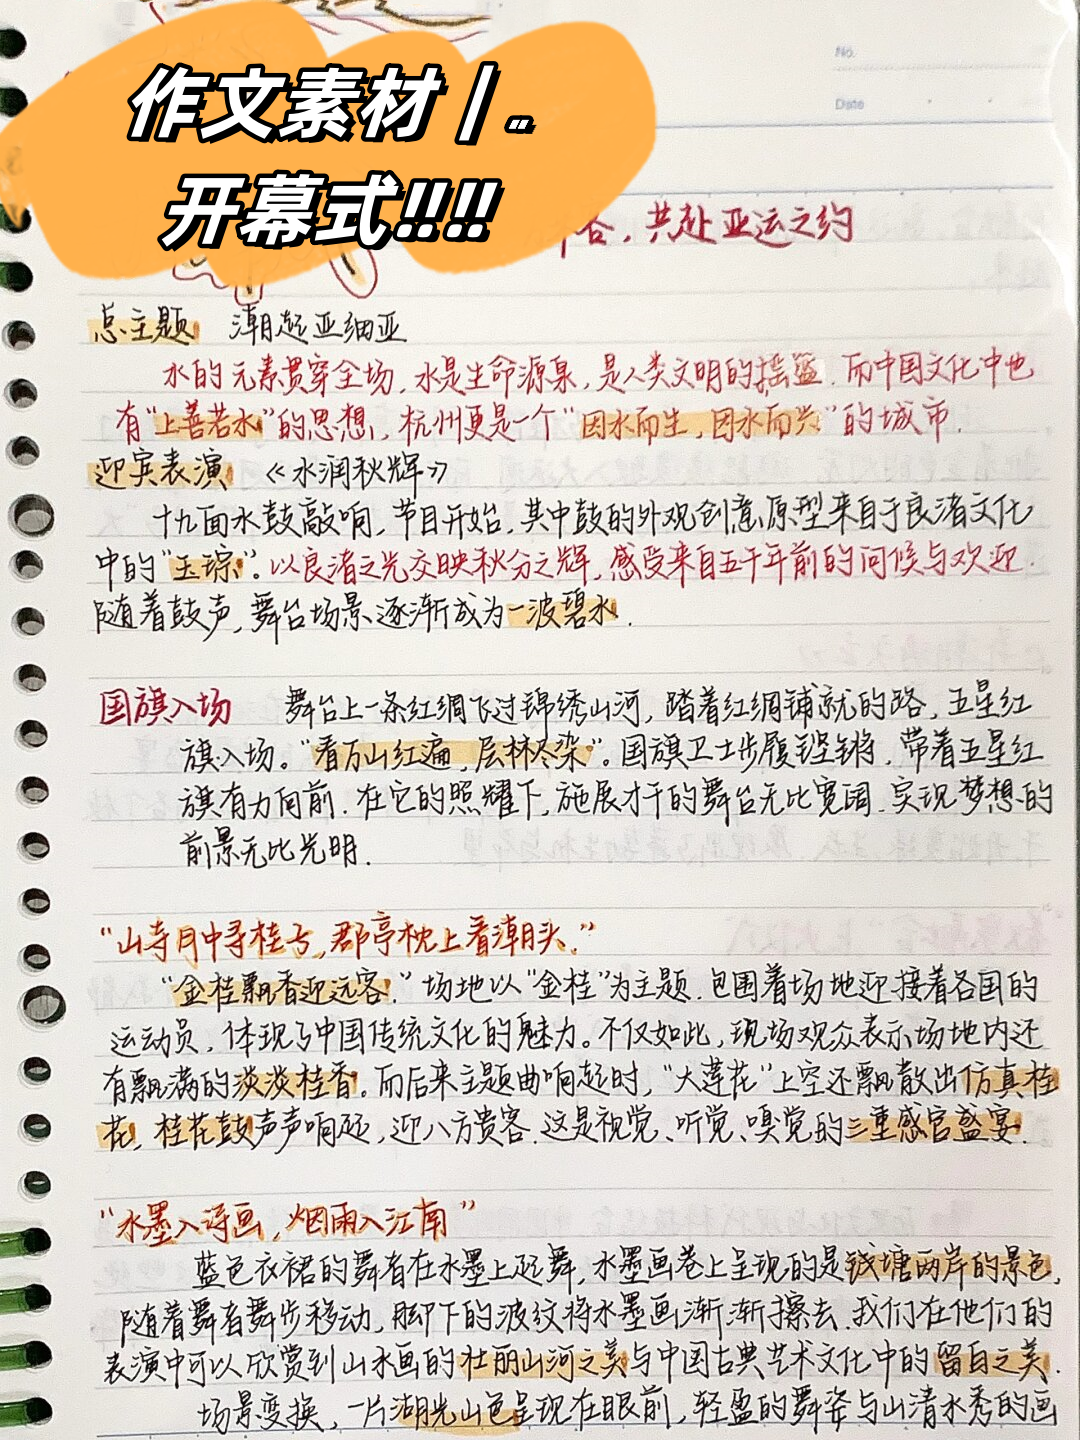 作文素材 | ..
开幕式!!!!
No.
Date
合，共赴亚运之约
总主题 潮起亚细亚
水的元素贯穿全场，水是生命源泉，是人类文明的摇篮．而中国文化中也
有“上善若水”的思想，杭州更是一个“因水而生，因水而兴”的城市．
迎宾表演 《水润秋辉》
十九面水鼓敲响，节目开始．其中鼓的外观创意原型来自于良渚文化
中的“玉琮”。以良渚之光交映秋分之辉，感受来自五千年前的问候与欢迎．
随着鼓声，舞台场景逐渐成为一波碧水．
国旗入场 舞台上一条红绸飞过锦绣山河，踏着红绸铺就的路，五星红
旗入场。“看万山红遍，层林尽染”。国旗卫士步履铿锵，带着五星红
旗有力向前．在它的照耀下，施展才干的舞台无比宽阔．实现梦想的
前景无比光明．
“山寺月中寻桂子，郡亭枕上看潮头．”
“金桂飘香迎远客．”场地以“金桂”为主题．包围着场地迎接着各国的
运动员，体现了中国传统文化的魅力。不仅如此，现场观众表示场地内还
有飘满的淡淡桂香。而后来主题曲响起时，“大莲花”上空还飘散出仿真桂
花，桂花鼓声声响起，迎八方贵客．这是视觉、听觉、嗅觉的三重感官盛宴．
“水墨入诗画，烟雨入江南”
蓝色衣裙的舞者在水墨上起舞，水墨画卷上呈现的是钱塘两岸的景色，
随着舞者舞步移动，脚下的波纹将水墨画渐渐擦去．我们在他们的
表演中可以欣赏到山水画的壮丽山河之美与中国古典艺术文化中的留白之美．
场景变换，一片湖光山色呈现在眼前，轻盈的舞姿与山清水秀的画